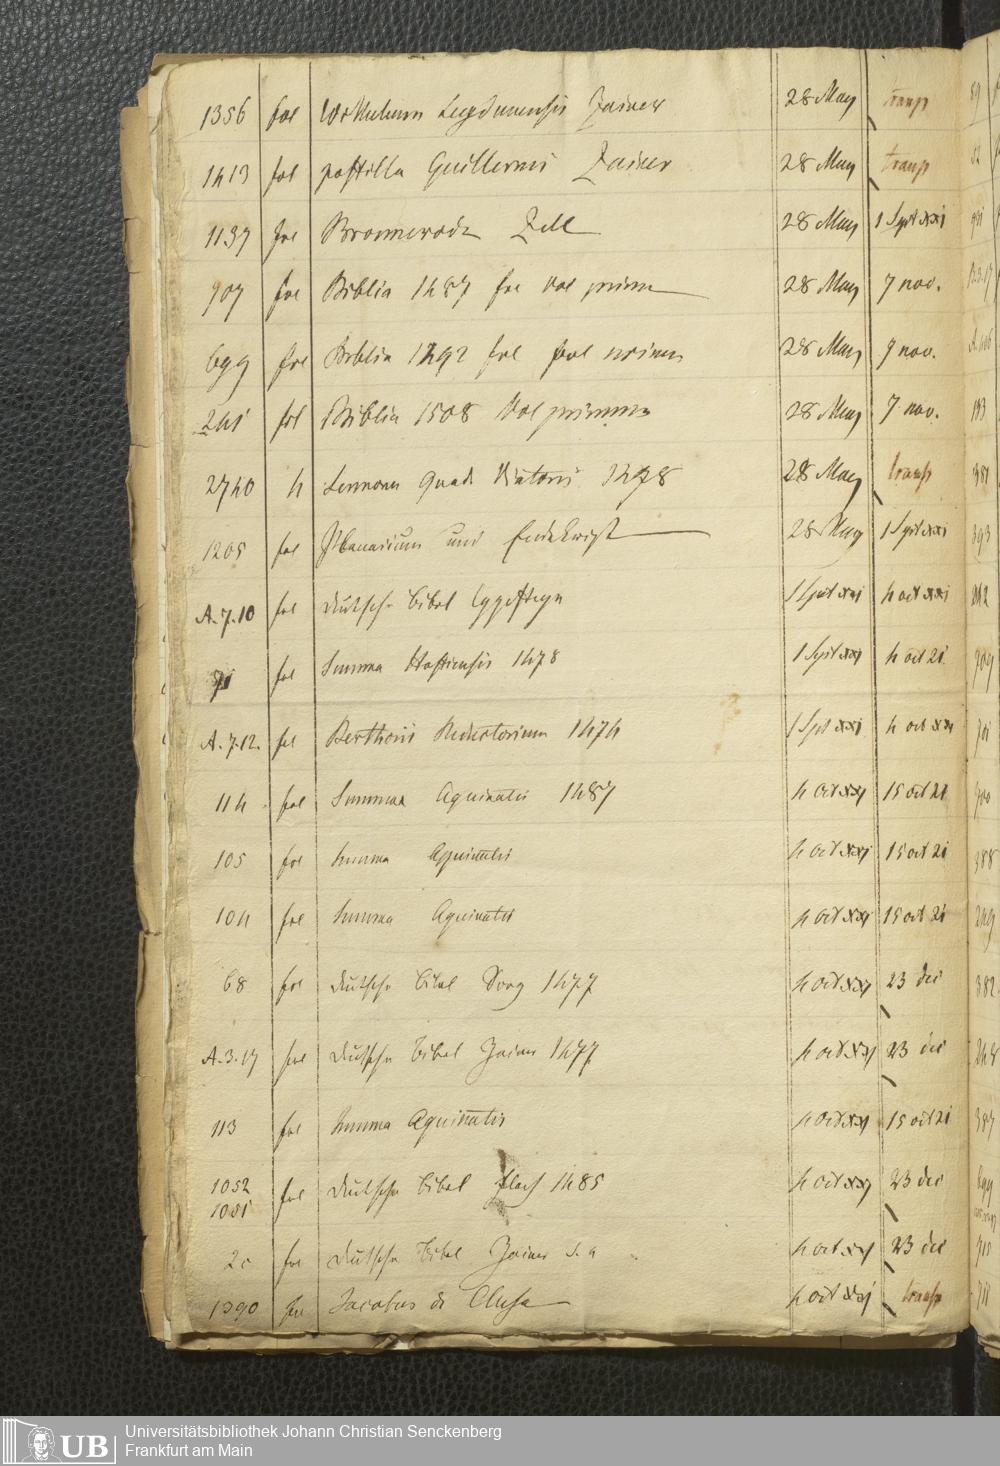 1356 fol Wilhelmum Lugdunensis Zainer 28 May transp
1413 fol postilla Guillermi Zainer 28 May transp
1137 fol Zell 28 May 1 Spt xxi
907 fol Biblia 1487 fol Vol primum 28 May 7 nov.
699 fol Biblia 1492 fol 28 May 7 nov.
241 fol Biblia 1508 Vol primum 28 May 7 nov.
2740 4 Sermones Quadr Viatoris 1478 28 May transp
1205 fol und Endekrist 28 May 1 Spt xxi
A.7.10 fol deutsche bibel Eggesteyn 1 Spt xxi 4 oct xxi
71 fol Summa Hostiensis 1478 1 Spt xxi 4 oct 21
A.7.12. fol Berthorii Reductorium 1474 1 Spt xxi 4 oct xxi
114 fol Summa Aquinatis 1487 4 oct xxj 15 oct 21
105 fol Summa Aquinatis 4 oct xxj 15 oct 21
104 fol Summa Aquinatis 4 oct xxj 15 oct 21
68 fol deutsche bibel Sorg 1477 4 oct xxj 23 dec
A.3.17 fol deutsche bibel Zainer 1477 4 oct xxj 23 dec
113 fol Summa Aquinatis 4 oct xxj 15 oct 21
1052
1051 fol deutsche bibel 1485 4 oct xxj 23 dec
fol deutsche bibel Zainer s. a 4 oct xxj 23 dec
1390 fol Jacobus de Clusa 4 oct xxj transp
Universitätsbibliothek Johann Christian Senckenberg
Frankfurt am Main
UB